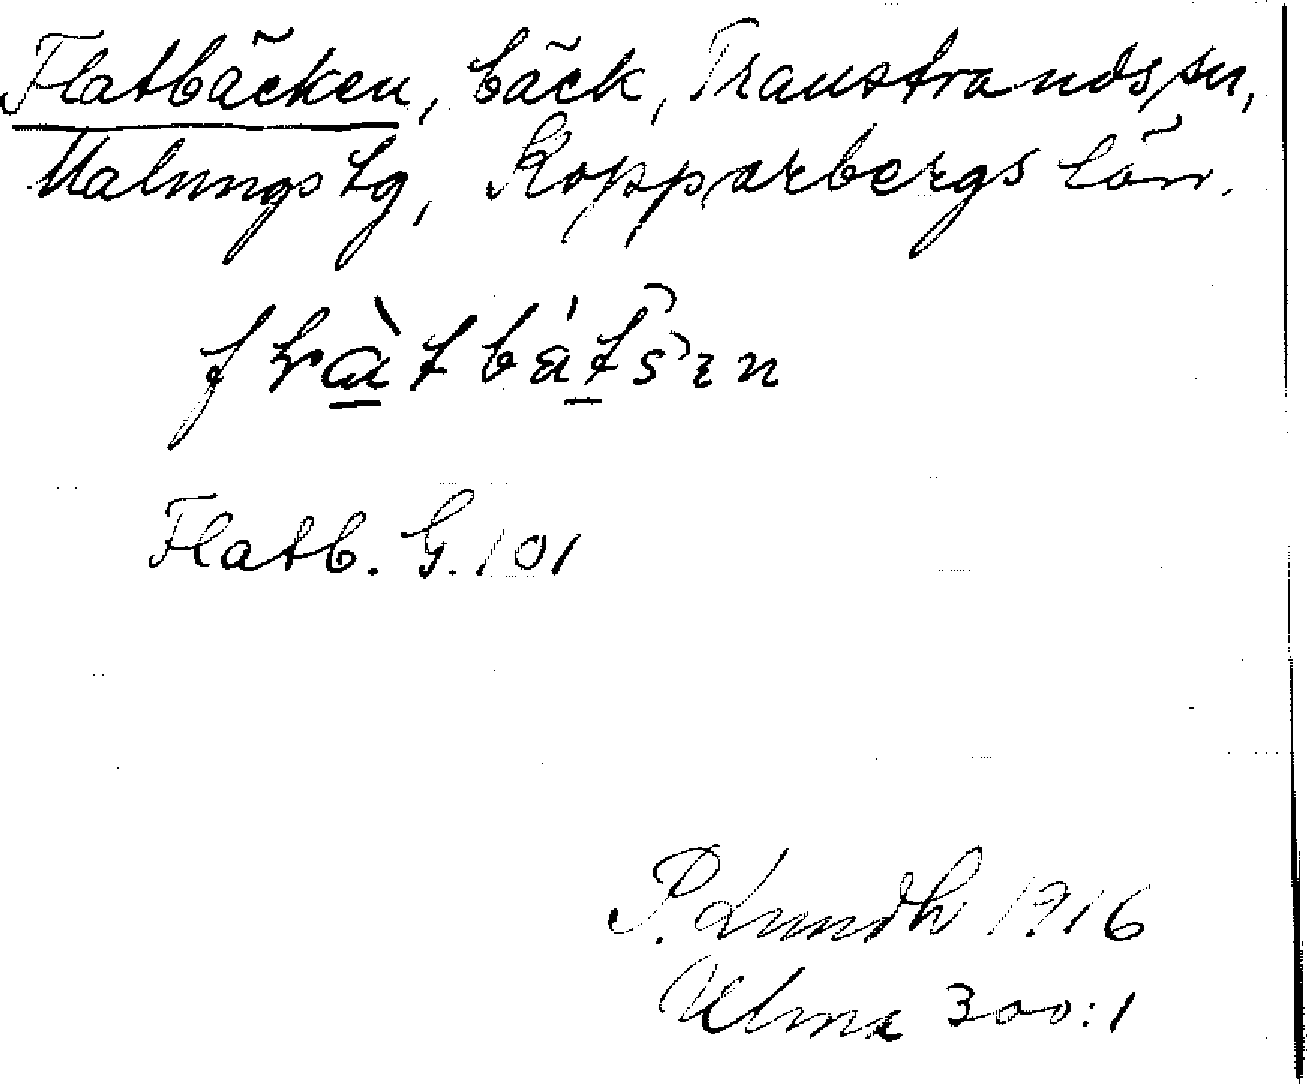 Flatbäcken, bäck, Transtrands sn,
Malungs tg, Kopparbergs län.
Flatb. G. 101
P. Lundh 1916
Ulma 300:1